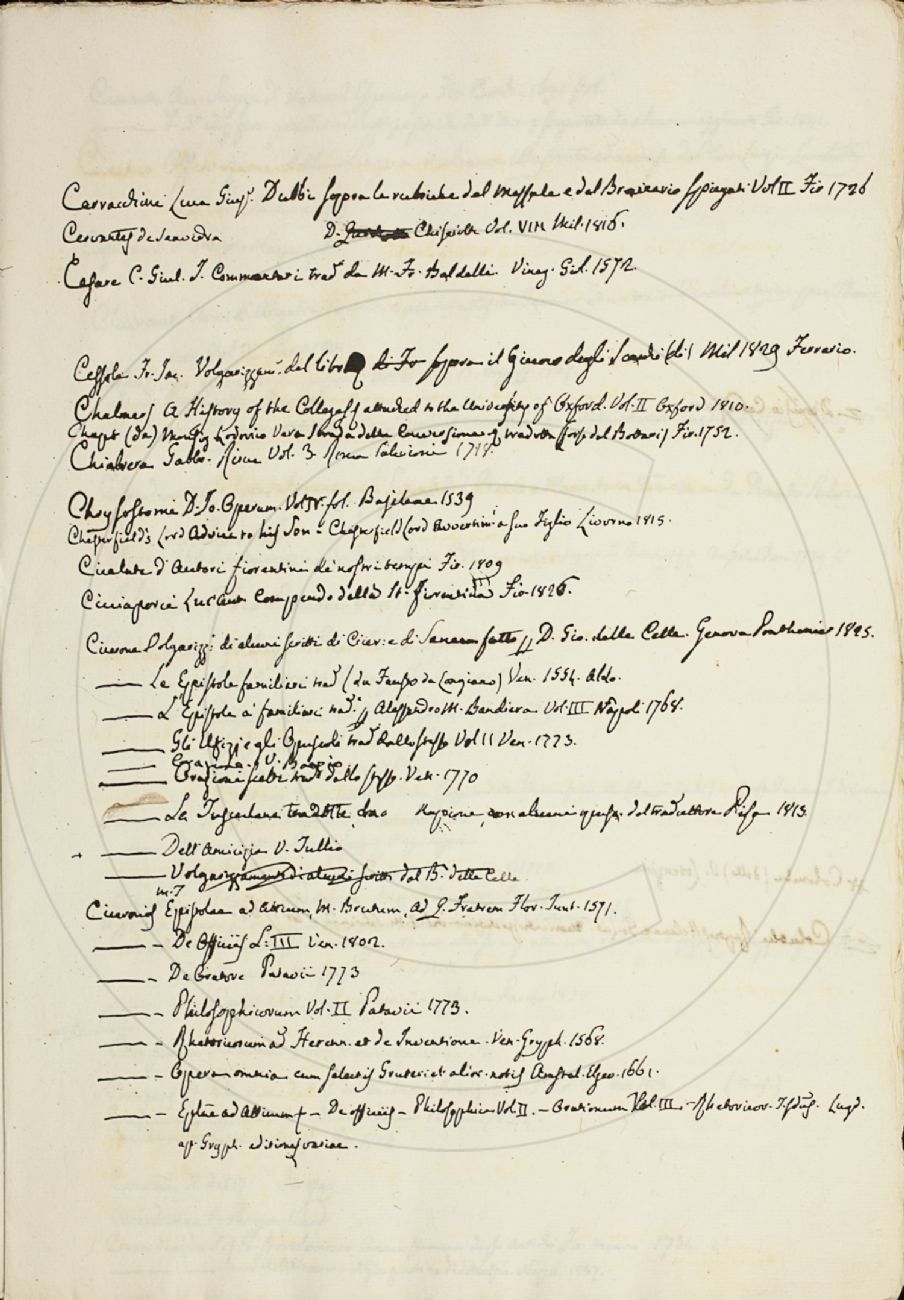 Cerracchini Luca Gius. Dubbi sopra le rubriche del Messale e del Breviario spiegati Vol II Fir 1726
Cervantes de Saavedra D. Chisciotte Vol. VIII Mil. 1816.
Cesare C. Giul. I Commentari trad. da M. Fr. Baldelli. Vineg. Giol. 1572.
Cessole Fr. Jac. Volgarizzam. del libro di Fr sopra il Giuoco degli Scacchi (di) Mil 1829 Ferrario.
Chalmers A History of the Colleges attached to the University of Oxford. Vol. II Oxford 1810.
(da) Monsig Lodovico della Conversione tradotta Bottari Fir. 1752.
Chiabrera Gabb. Rime Vol. 3. Roma Salvioni 1718.
Chrysostomi D. Jo. Operum. Vol IV. fol. Basileae 1539
Chesterfield's Lord Advice to his Son - Chesterfield Lord Avvertim. a suo Figlio Livorno 1815.
Cicalate d'Autori fiorentini de' nostri tempi Fir. 1809
Ciciaporci Luc'Ant. Compendo della St. fiorentina Fir 1826.
Cicerone Volgarizz. di alcuni scritti di Cicer. e di Seneca fatto D. Gio. delle Celle. Genova Ponthenier 1825.
— Le Epistole familiari trad. (da Fausto da Longiano) Ven. 1554. Aldo.
— L'Epistole a' familiari trad. Alessandro M. Bandiera Vol. III Napoli 1768.
— Gli Ufizj e gli Opuscoli trad dallo stesso Vol II Ven. 1773.
— V. Boezio
— Orazioni scelte trad. dallo stesso. Ven. 1770
— Le Tusculane tradotte con alcune del traduttore Pisa 1813.
— Dell'Amicizia V. Tullio
— Volgarizzamento di alcuni scritti del B. delle Celle
m. T
Ciceronis Epistolae ad Aticum, M. Brutum, ad Q. Fratrem Flor. Junt. 1571.
— - De Officiis L. III Ven. 1802.
— - De Oratore Patavii 1773
— - Philosophicorum Vol. II Patavii 1773.
— - Rhetoricorum ad Herenn. et de Inventione. Ven. Gryph. 1568.
— - Opera omnia cum selectis Gruteri et alior. notis Amstel. Elzev. 1661.
— - ad Atticum - De officiis - Philosophica Vol. II. - Orationum Vol. III. - Rhetoricor. Lugd.
ap. Gryph. editiones variae.